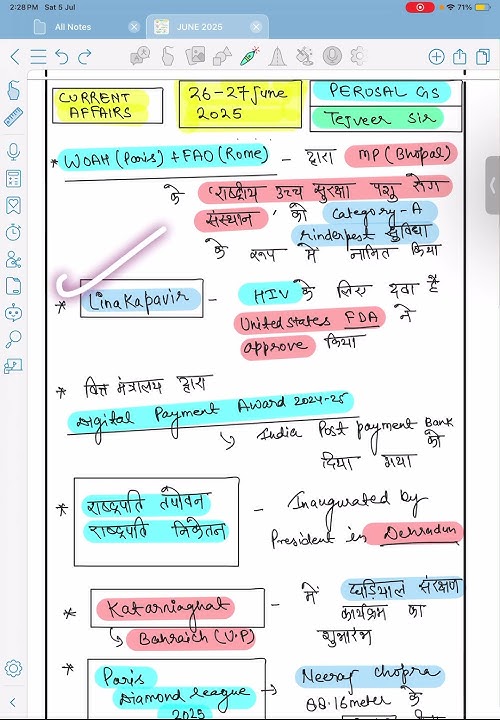 2:28 PM Sat 5 Jul
71%
All Notes
JUNE 2025
CURRENT AFFAIRS
26-27 June 2025
PERUSAL GS
Tejveer Sir
* WOAH (Paris) + FAO (Rome) - द्वारा MP (Bhopal)
के 'राष्ट्रीय उच्च सुरक्षा पशु रोग
संस्थान' को Category-A
rinderpest सुविधा
के रूप में नामित किया
* Linakapavir - HIV के लिए दवा है
United States FDA ने
approve किया
* वित्त मंत्रालय द्वारा
Digital Payment Award 2024-25
↳ India Post payment Bank को
दिया गया
* राष्ट्रपति तपोवन
राष्ट्रपति निकेतन
- Inaugurated by
President in Dehradun
* Katarniaghat - में घड़ियाल संरक्षण
↳ Bahraich (U.P) कार्यक्रम का
शुभारंभ
* Paris
Diamond league
2025
→ Neeraj Chopra
88.16 meter के